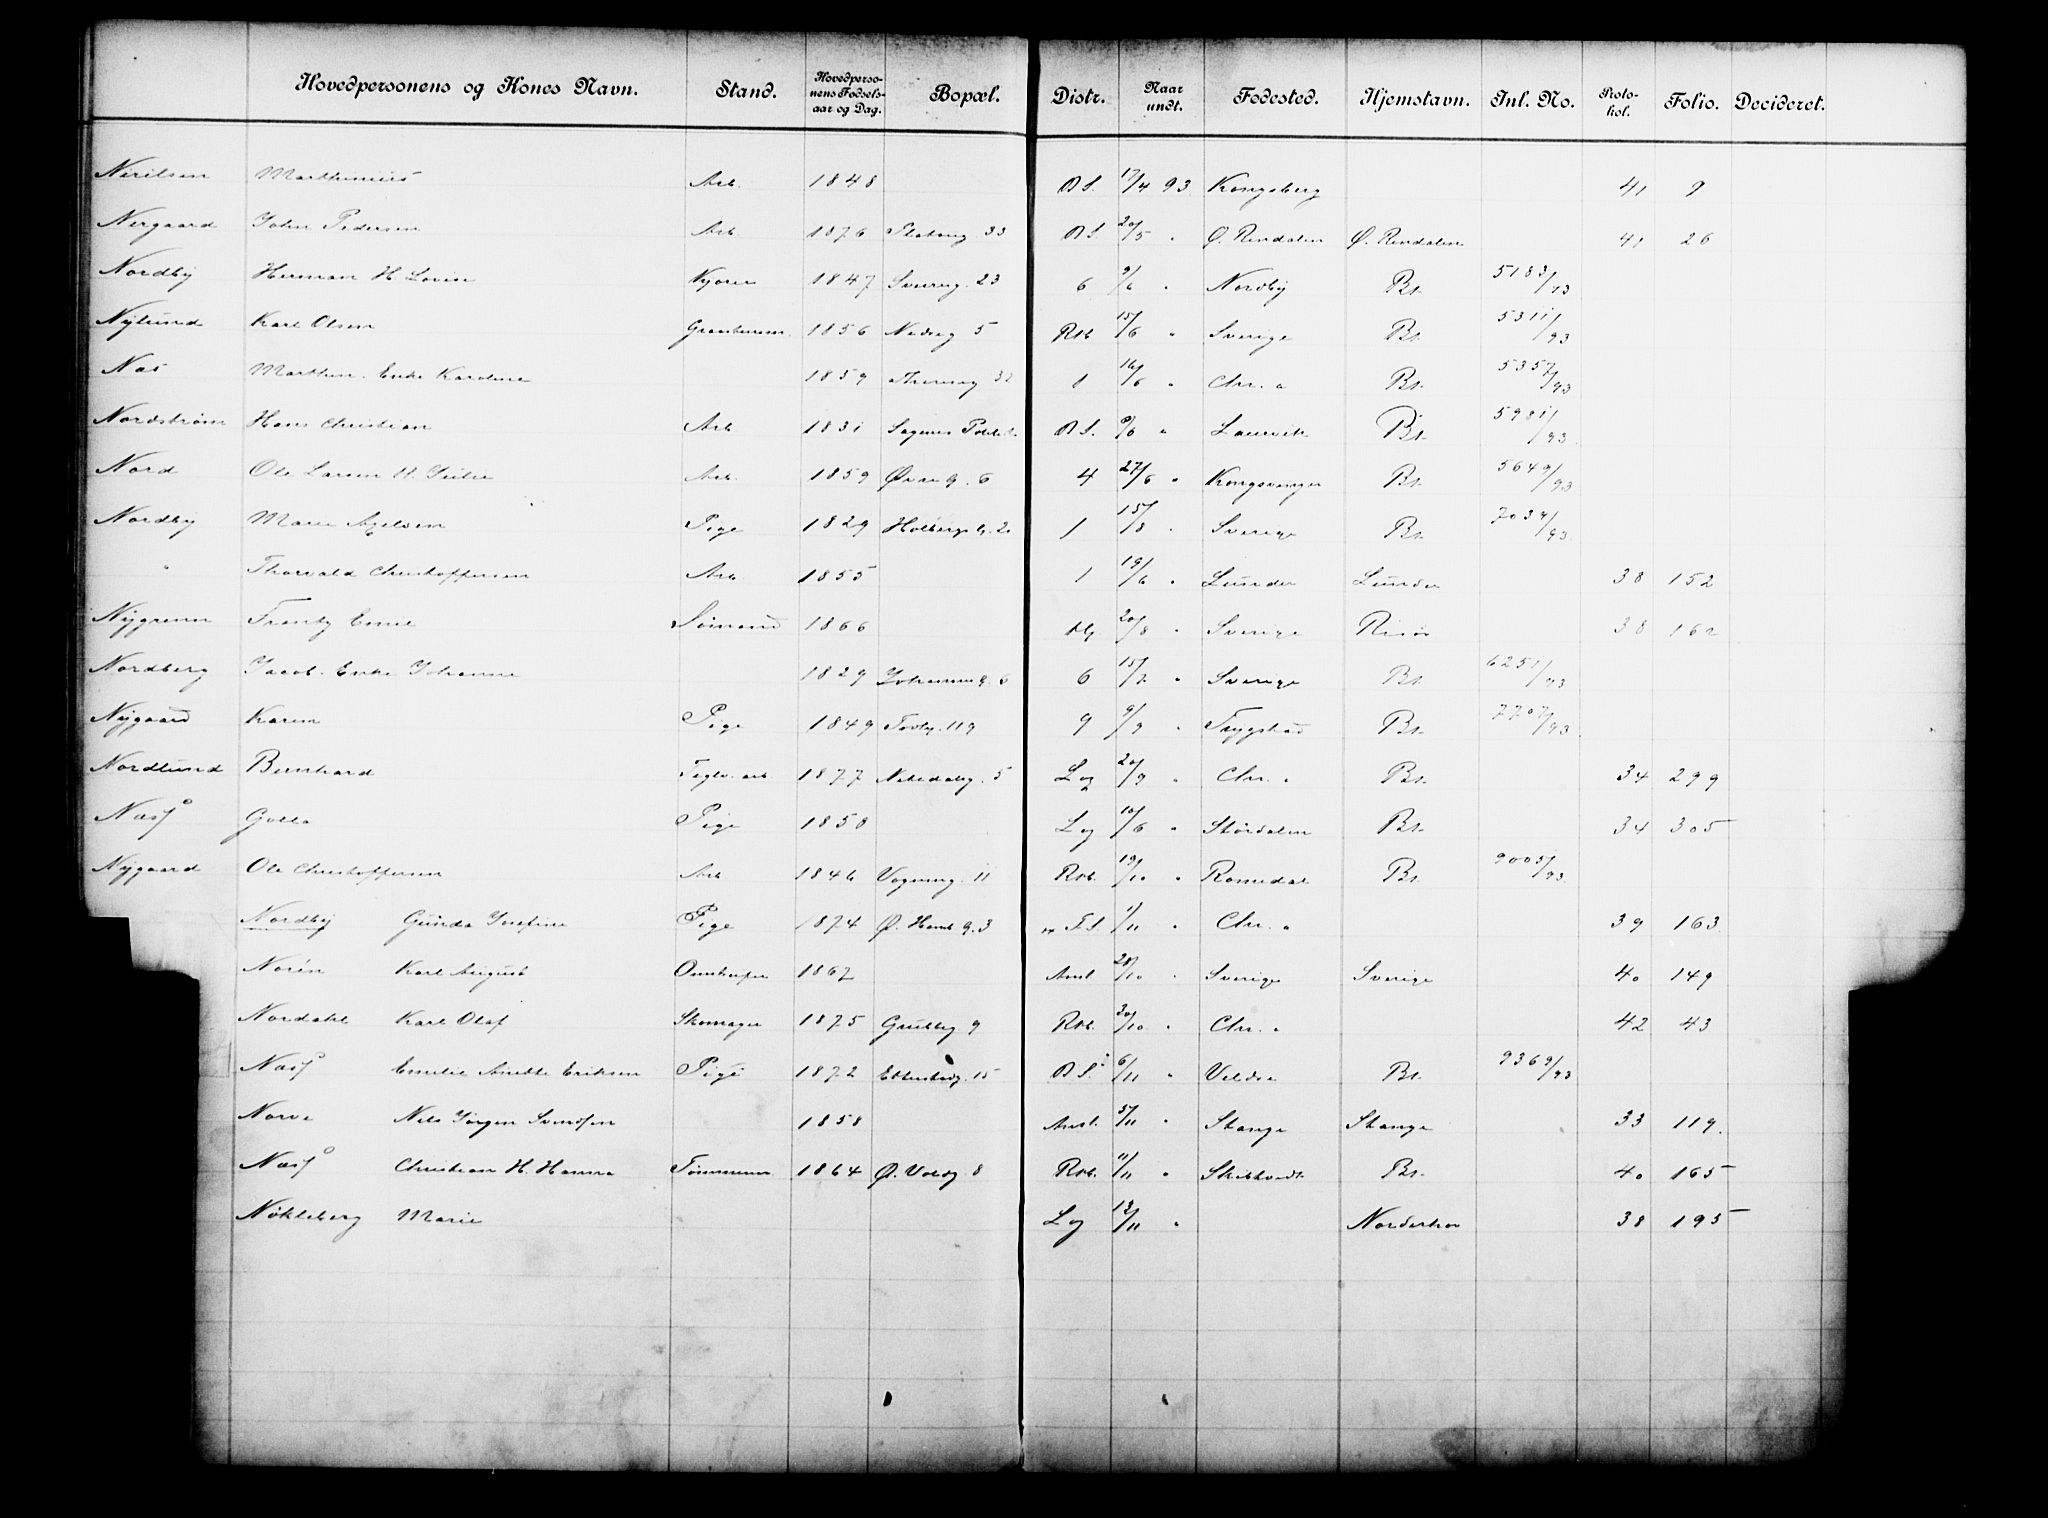 Hovedpersonens og Kones Navn. Stand. Hovedpersonens Fødselsaar og Dag. Bopæl. Distr. Naar undt. Fødested. Hjemstavn. Inl. No. Protokol. Folio. Decideret.
Martinius Arb. 1848 B S. 17/4 93 Kongsberg 41 9
Nergaard John Pedersen Arb. 1876 33 B S. 20/5 " Ø. Rendalen Ø. Rendalen 41 26
Nordby Herman H. Lovise Kjører 1847 Sverreg. 23 6 9/6 " Nordby Bt. 5183/93
Nylund Karl Olsen 1856 Nedreg 5 Rtb 15/6 " Sverige Bt. 5311/93
Næs Martin. Enke Karoline 1859 32 1 16/6 " Chr. a Bt. 5357/93
Nordstrøm Hans Christian Arb 1831 Sagenes B S. 9/6 " Laurvik Bt. 5981/93
Nord Ole Larsen H. Arb. 1859 Øvre g. 6 4 27/6 " Kongsvinger Bt. 5649/93
Nordby Marie Axelsen Pige 1829 Holbergs g. 2 1 15/8 " Sverige Bt. 7034/93
" Thorvald Christoffersen Arb. 1855 1 19/6 " Lunder Lunder 38 152
Nygrenn Frantz Emil Sømand 1866 20/8 " Sverige Risør 38 162
Nordberg Jacob. Enke Johanne 1829 Johannes g. 6 6 15/7 " Sverige Bt. 6251/93
Nygaard Karen Pige 1849 Toftg. 119 9 9/9 " Trygstad Bt. 7707/93
Nordlund Bernhard Teglv. arb 1877 Nittedalsg. 5 Lg 20/9 " Chr. a Bt. 34 299
Næss Golla Pige 1858 Lg 10/6 " Størdalen Bt. 34 305
Nygaard Ole Christoffersen Arb 1846 Vognmg. 11 Rtb. 19/10 " Romedal Bt. 9005/93
Nordby Gunda Josefine Pige 1874 Ø. Hamb g. 3 F.S 1/11 " Chr. a 39 163.
Norén Karl August 1867 Anst 28/10 " Sverige Sverige 40 149
Nordahl Karl Olaf Skomager 1875 Grubbg 9 Rtb. 30/10 " Chr. a 42 43
Næss Emelie Anette Eriksen Pige 1872 Eilertsbg. 15 B S. 6/11 " Veldre Bt. 9369/93
Norve Nils Jørgen Svendsen 1858 Anst. 5/11 " Stange Stange 33 119.
Næss Christian H. Hanna Tømmerm 1864 Ø. Voldg 8 Rtb. 11/11 " Skibtvedt Bt. 40 165
Nøkleberg Marie Lg 13/11 " Norderhov 38 195